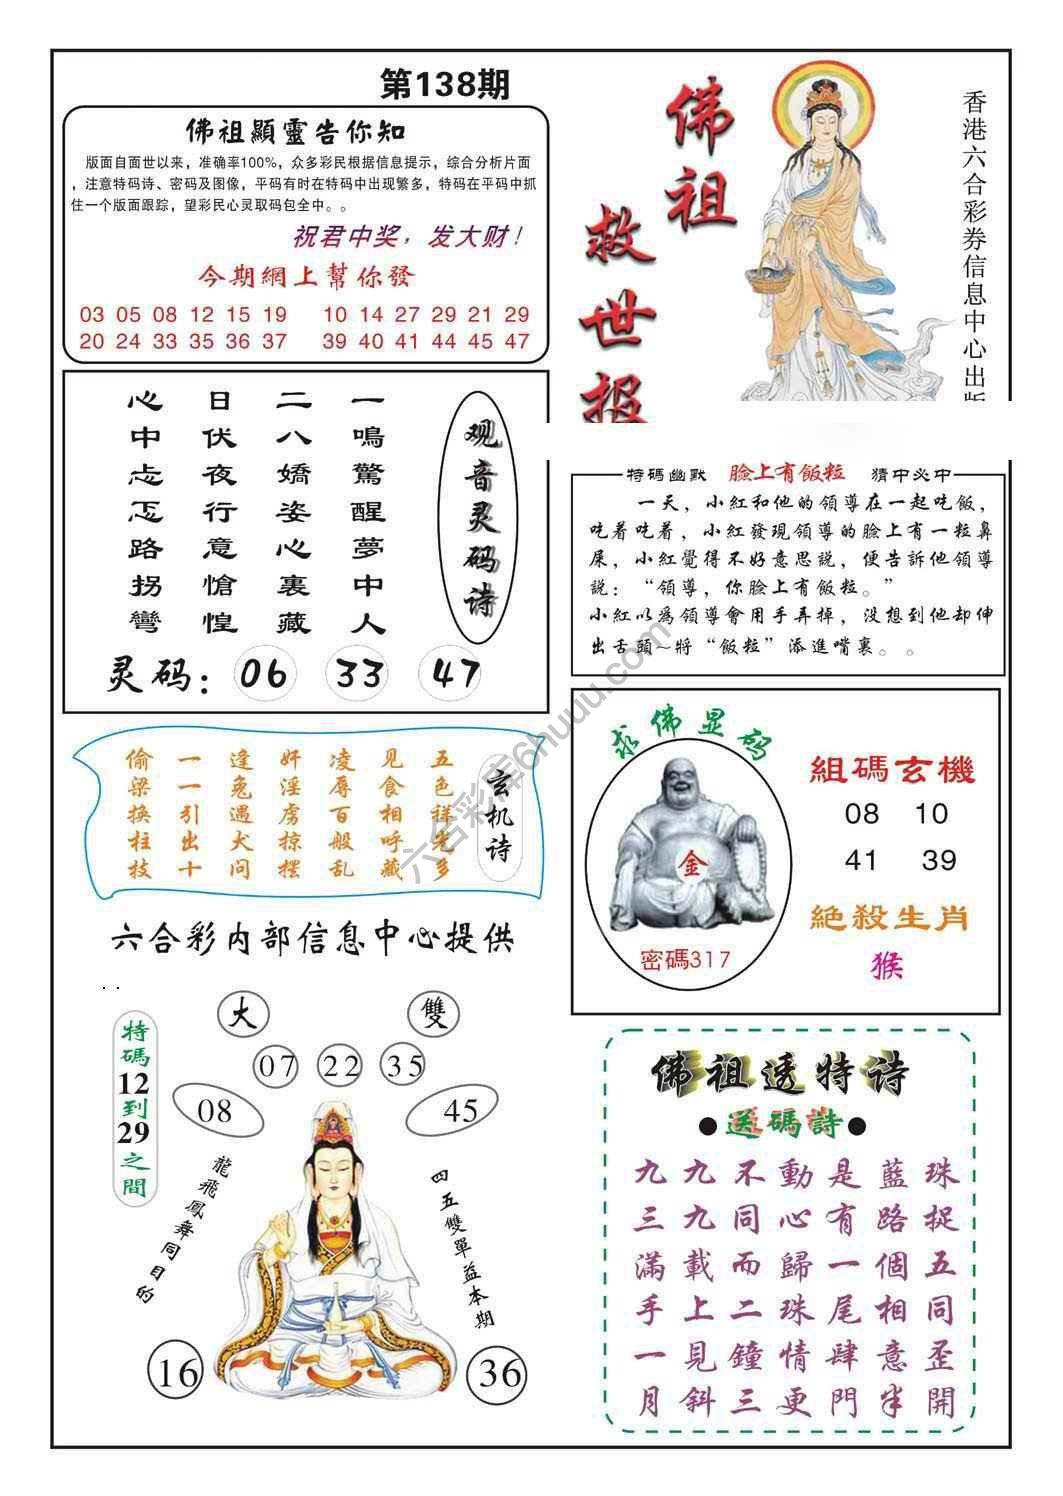 第138期
佛祖顯靈告你知
版面自面世以来，准确率100%，众多彩民根据信息提示，综合分析片面
，注意特码诗、密码及图像，平码有时在特码中出现繁多，特码在平码中抓
住一个版面跟踪，望彩民心灵取码包全中。。
祝君中奖，发大财！
今期網上幫你發
03 05 08 12 15 19 10 14 27 29 21 29
20 24 33 35 36 37 39 40 41 44 45 47
佛祖
救世报
香港六合彩券信息中心出版
观音灵码诗
一鳴驚醒夢中人
二八嬌姿心裏藏
日伏夜行意愴惶
心中忐忑路拐彎
灵码：06 33 47
特碼幽默 臉上有飯粒 猜中必中
一天，小紅和他的領導在一起吃飯，
吃着吃着，小紅發現領導的臉上有一粒鼻
屎，小紅覺得不好意思説，便告訴他領導
説：“領導，你臉上有飯粒。”
小紅以為領導會用手弄掉，没想到他却伸
出舌頭～將“飯粒”添進嘴裏。。
玄机诗
五色祥先多
见食相呼藏
凌辱百般乱
奸淫虏掠摆
逢兔遇犬问
一一引出十
偷梁换柱技
求佛显码
金
密碼317
組碼玄機
08 10
41 39
絕殺生肖
猴
六合彩内部信息中心提供
特碼12到29之間
大 雙
07 22 35
08 45
龍飛鳳舞同目的
四五雙單益本期
16 36
佛祖透特诗
●送碼詩●
九九不動是藍珠
三九同心有路捉
滿載而歸一個五
手上二珠尾相同
一見鐘情肆意歪
月斜三更門半開
六合彩库6huuu.com